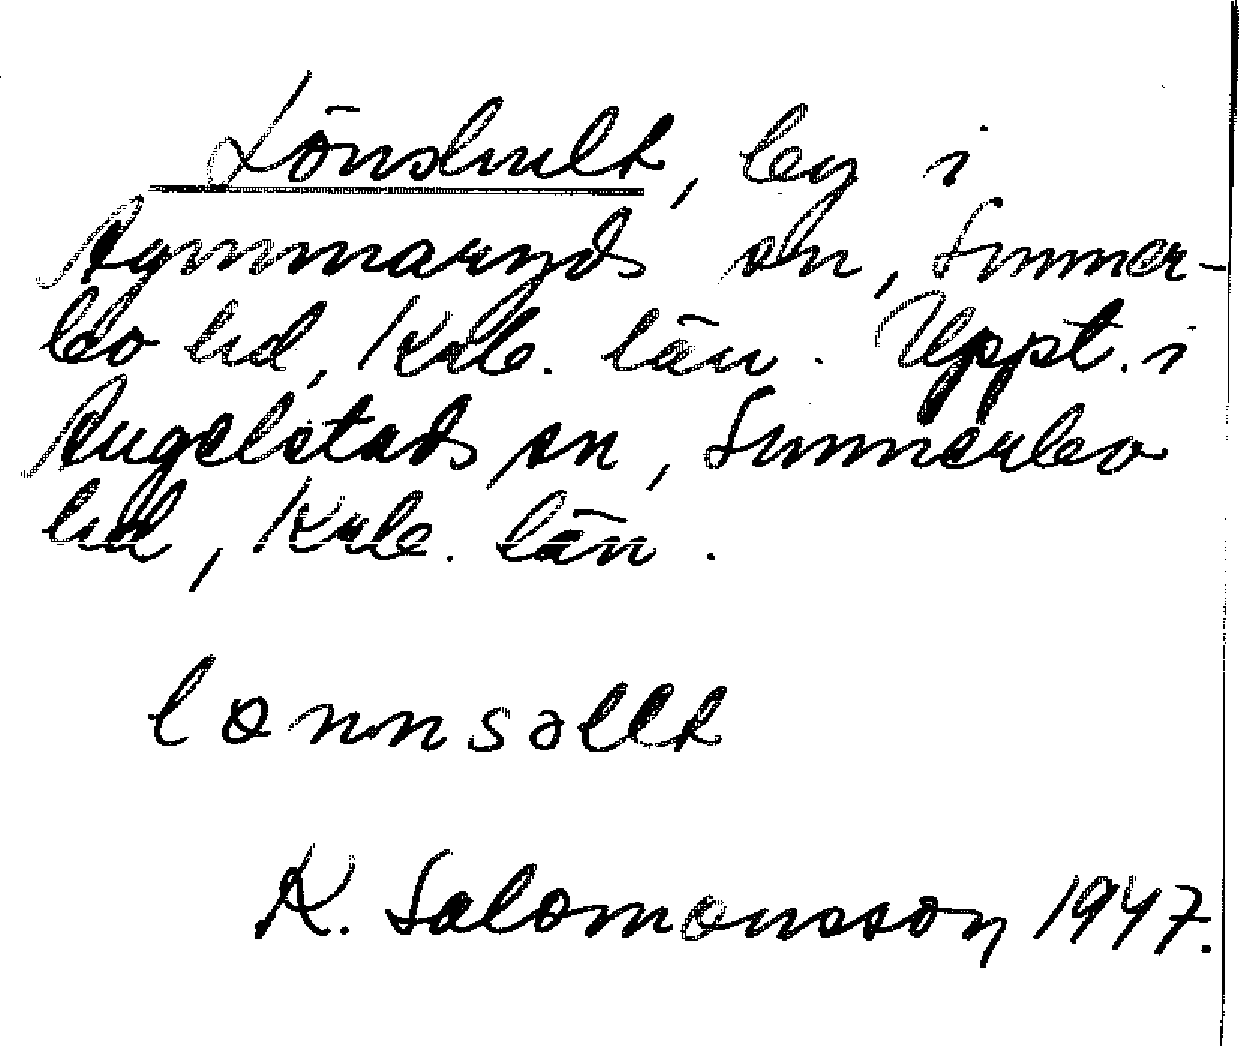 Lönshult, by i
Rymmaryds sn, Sunner-
bo hd, Krb. län. Uppt. i
Angelstads sn, Sunnerbo
hd, Krb. län.
lonnsallt
K. Salomonsson 1947.